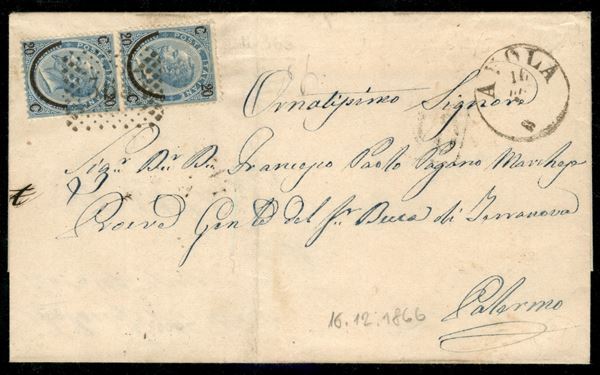 C 20 20 C
C 20 20 C
POSTE ITALIANE
A OLA
16
Ornatissimo Signore
Sig.r D.n D.n Francesco Paolo Pagano Marchese
Proc.re Gen.le del S.r Duca di Terranova
Palermo
16.12.1866